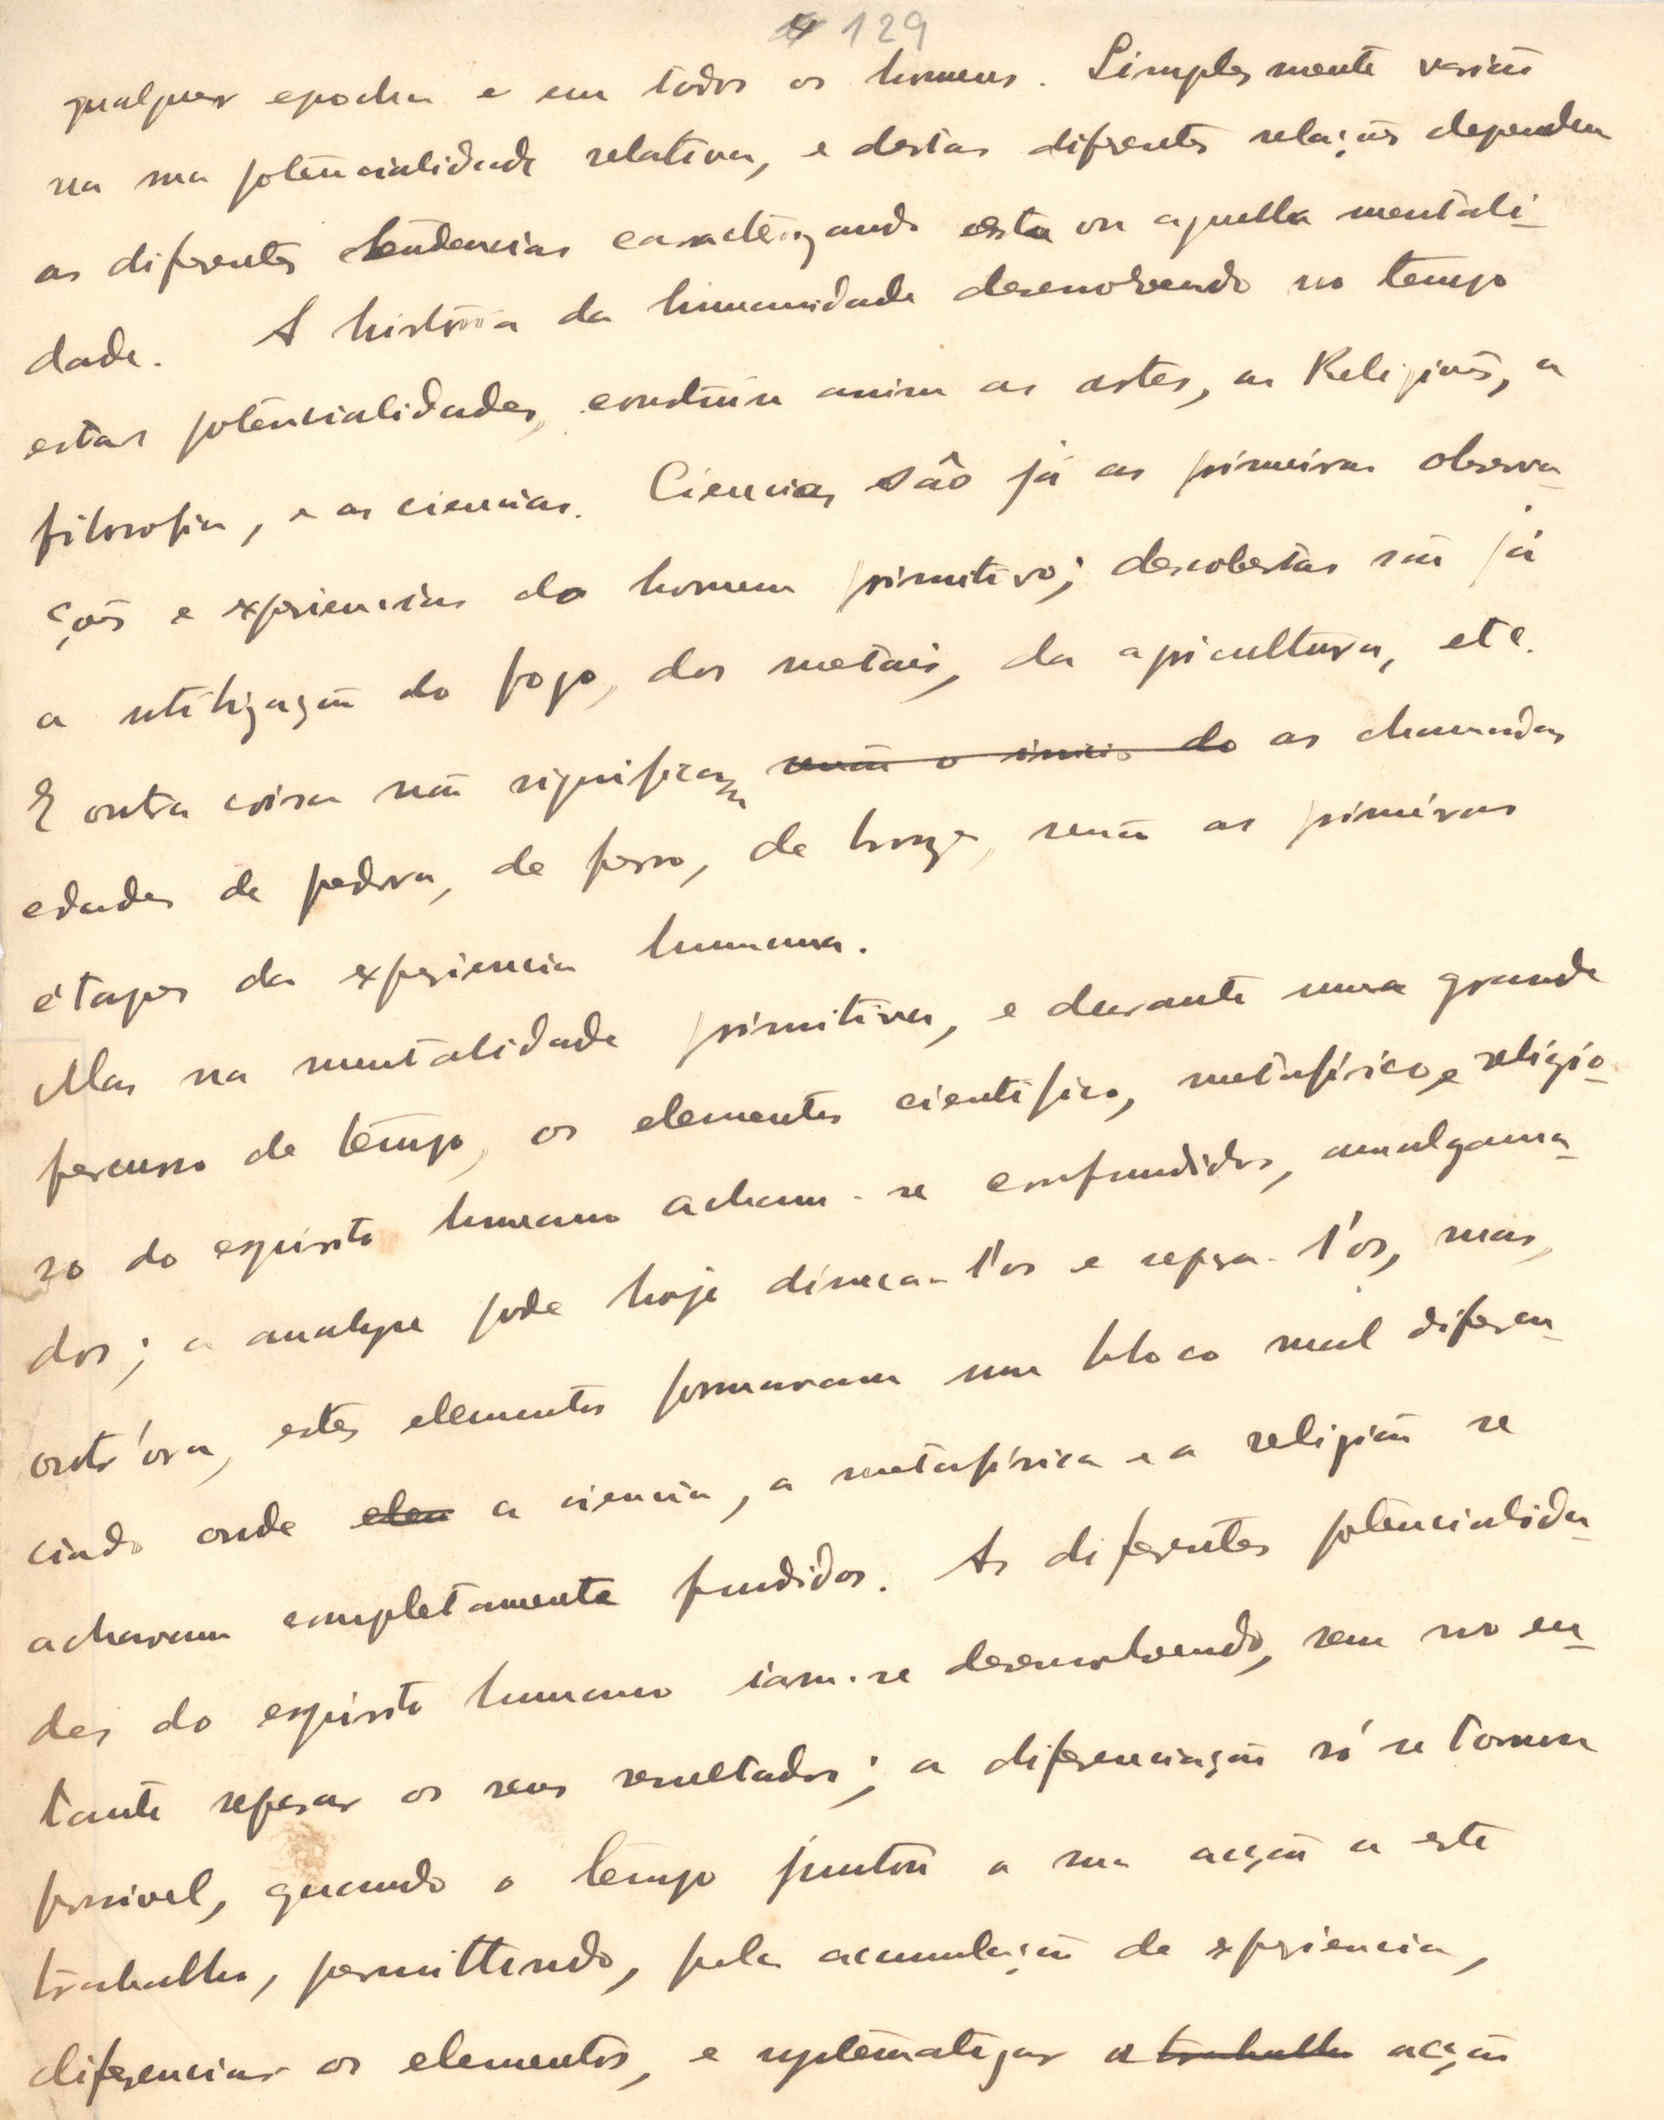 129
qualquer epocha e em todos os homens. Simplesmente variam
na sua potencialidade relativa, e destas diferentes relações dependem
as diferentes tendencias caracterizando esta ou aquella mentali-
dade. A historia da humanidade desenvolvendo no tempo
estas potencialidades, construiu assim as artes, as Religiões, a
filosofia, e as ciencias. Ciencias são já as primeiras observa-
ções e experiencias do homem primitivo; descobertas são já
a utilização do fogo, dos metais, da apicultura, etc.
E outra coisa não significam senão o inicio do as chamadas
edades de pedra, de ferro, de bronze, senão as primeiras
étapes da experiencia humana.
Mas na mentalidade primitiva, e durante uma grande
percurso de tempo, os elementos cientifico, metafísico e religio-
so do espirito humano acham-se confundidos, amalgama-
dos; a analyse pode hoje disseca-l'os e sepera-l'os, mas,
outr'ora, estes elementos formavam um bloco mal diferen-
ciado onde eles a ciencia, a metafísica e a religião se
achavam completamente fundidos. As diferentes potencialida-
des do espirito humano iam-se desenvolvendo, sem no en-
tanto seperar os seus resultados; a diferenciação só se tornou
possivel, quando o tempo juntou a sua acção a este
trabalho, permittindo, pela acumulação de experiencia,
diferenciar os elementos, e systematizar o trabalho acção